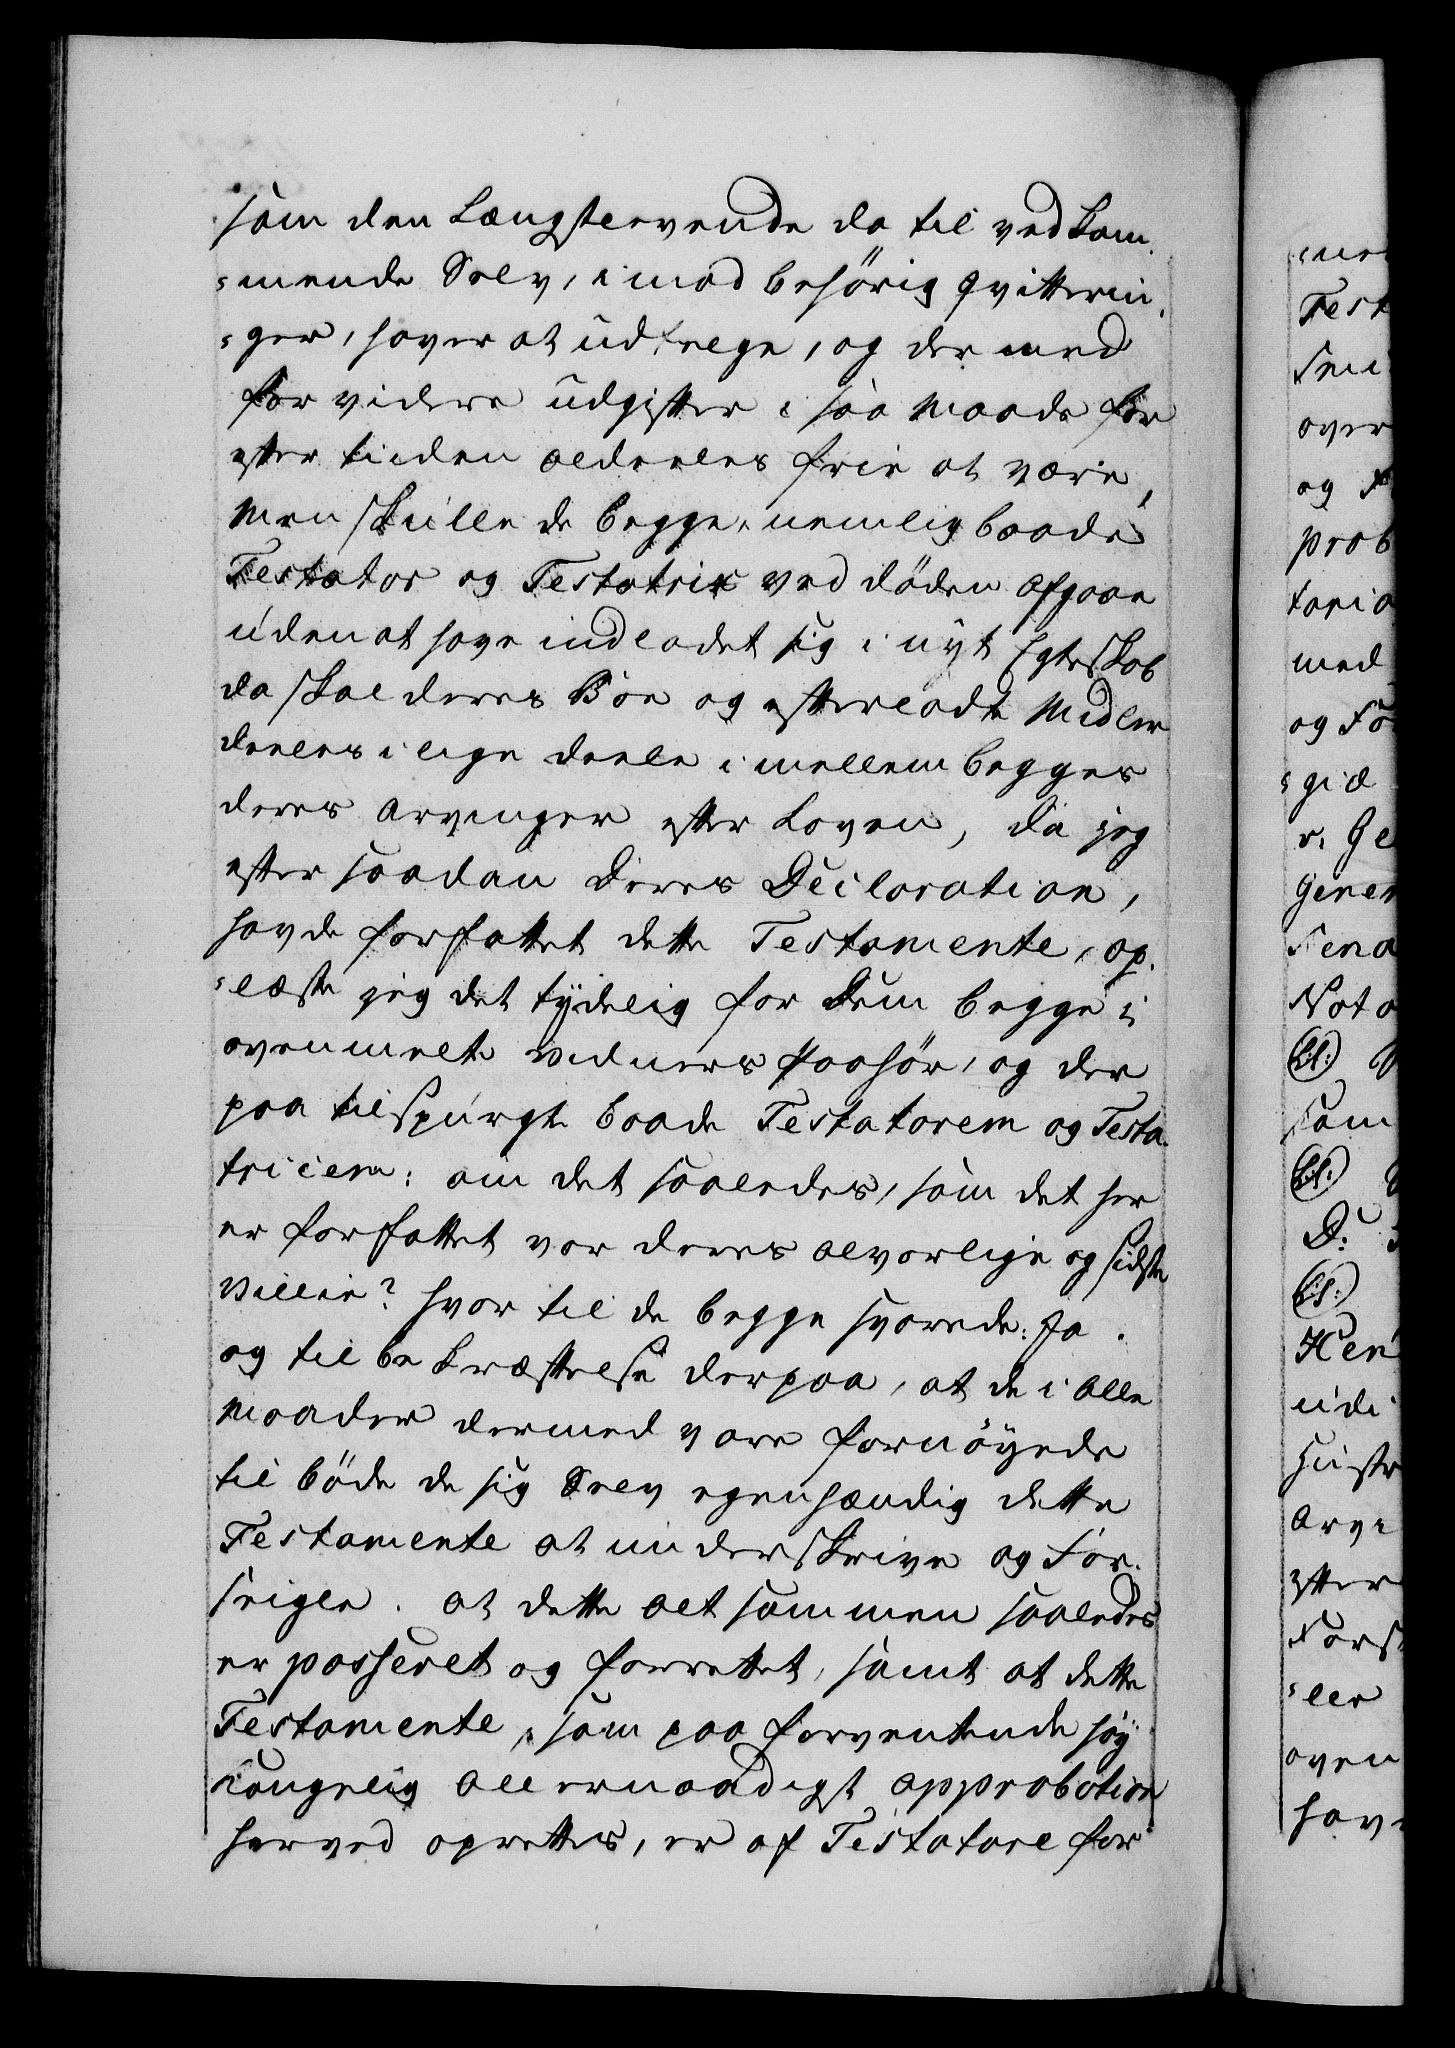 som den Længstlevende da til vedkom-
-mende Selv, imod behörig qvitterin-
-ger, haver at udlegge, og der med
for videre udgifter i saa Maade for
efter tiiden aldeeles frie at være,
Men skulle de begge, nemlig baade
Testator og Testatrix ved döden afgaae
uden at have indladet sig i nyt Egteskab
da skal deres Boe og efterladte Midler
deeles i lige deele imellem begges
deres Arvinger efter Loven, da jeg
efter saadan deres Declaration,
havde forfattet dette Testamente, op-
-læste jeg det tydelig for dem begge i
ovenmelte Vidners Paahör, og der
paa tilspurgte baade Testatorem og Testa-
tricem: om det saaledes, som det her
er forfattet var deres alvorlige og sidste
Villie? hvor til de begge svarede: Ja.
og til bekræftelse derpaa, at de i alle
Maader dermed vare fornöyede
til böde de sig Selv egenhændig dette
Testamente at underskrive og For-
seigle. at dette alt sammen saaledes
er passeret og forrettet, samt at dette
Testamente, som paa forventende höy
Kongelig allernaadigst approbation
herved oprettes, er af Testatore for
Test
over
og
prob
med
og
Gener
Noto
(L.S.)
som
(L.S.)
D:
(L.S.)
Hen
udi
Arvi
efter
oven